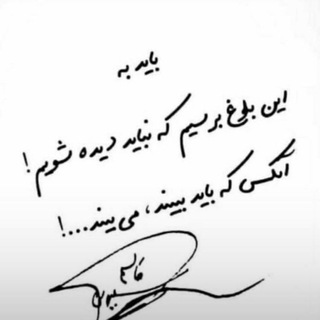 باید به
این بلوغ برسیم که نباید دیده شویم!
آنکس که باید ببیند، می‌بیند...!
قاسم سلیمانی